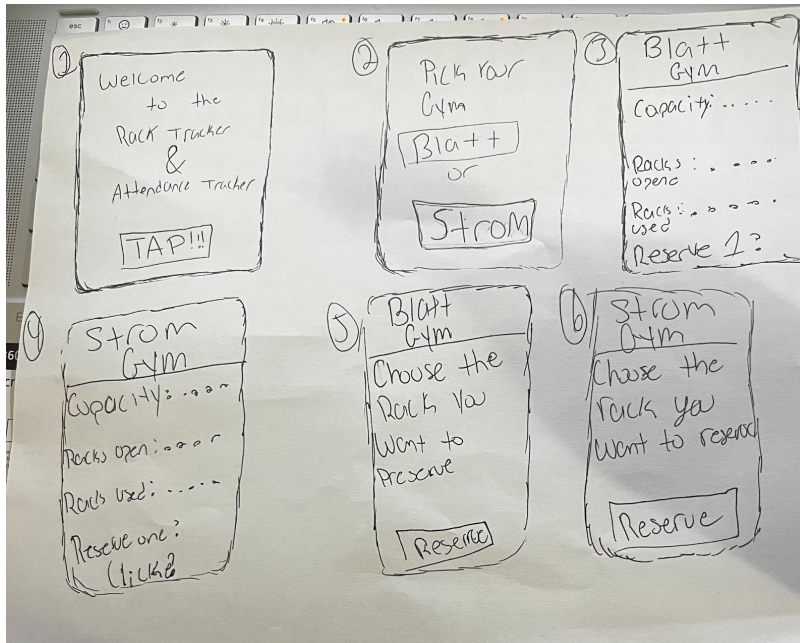 esc
1
Welcome
to the
Rack Tracker
&
Attendance Tracker
TAP!!!
2
Pick Your
Gym
Blatt
or
Strom
3
Blatt
Gym
Capacity:.....
Racks:....
Racks:.....
used
Reserve 1?
4
Strom
Gym
Capacity:....
Racks open:....
Racks used:.....
Reserve one?
5
Blatt
Gym
Choose the
Rack You
Want to
Preserve
Reserve
6
Strom
Gym
Choose the
rack you
want to reserve
Reserve